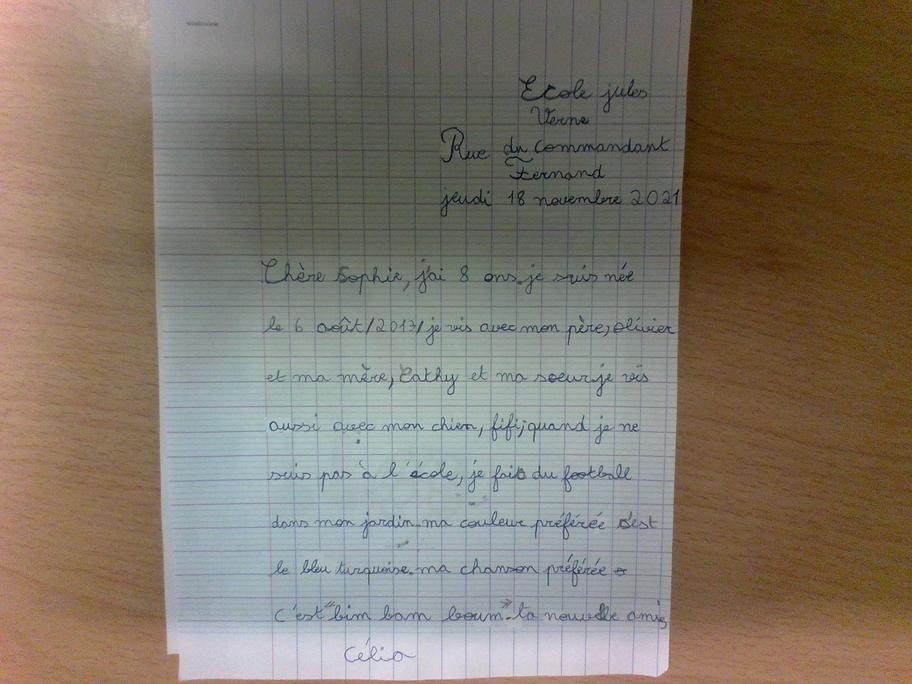 Ecole jules
Verne
Rue du Commandant
Fernand
jeudi 18 novembre 2021
Chère Sophie, j'ai 8 ans. je suis née
le 6 août/2013/je vis avec mon père, olivier
et ma mère, Cathy et ma soeur. je vis
aussi avec mon chien, fifi, quand je ne
suis pas à l'école, je fais du football
dans mon jardin. ma couleur préférée c'est
le bleu turquoise. ma chanson préférée
c'est "bim bam boum". ta nouvelle amie,
Célia